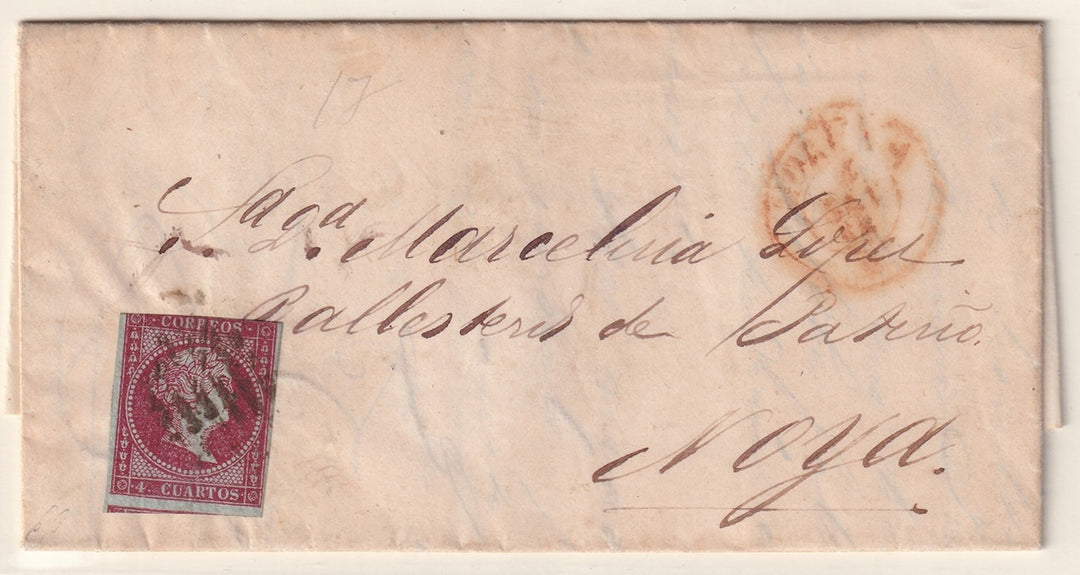 17
Sa. Dª. Dª. Marcelina Lopez
Ballesteros de Patiño.
CORREOS
4 CUARTOS
Noya.